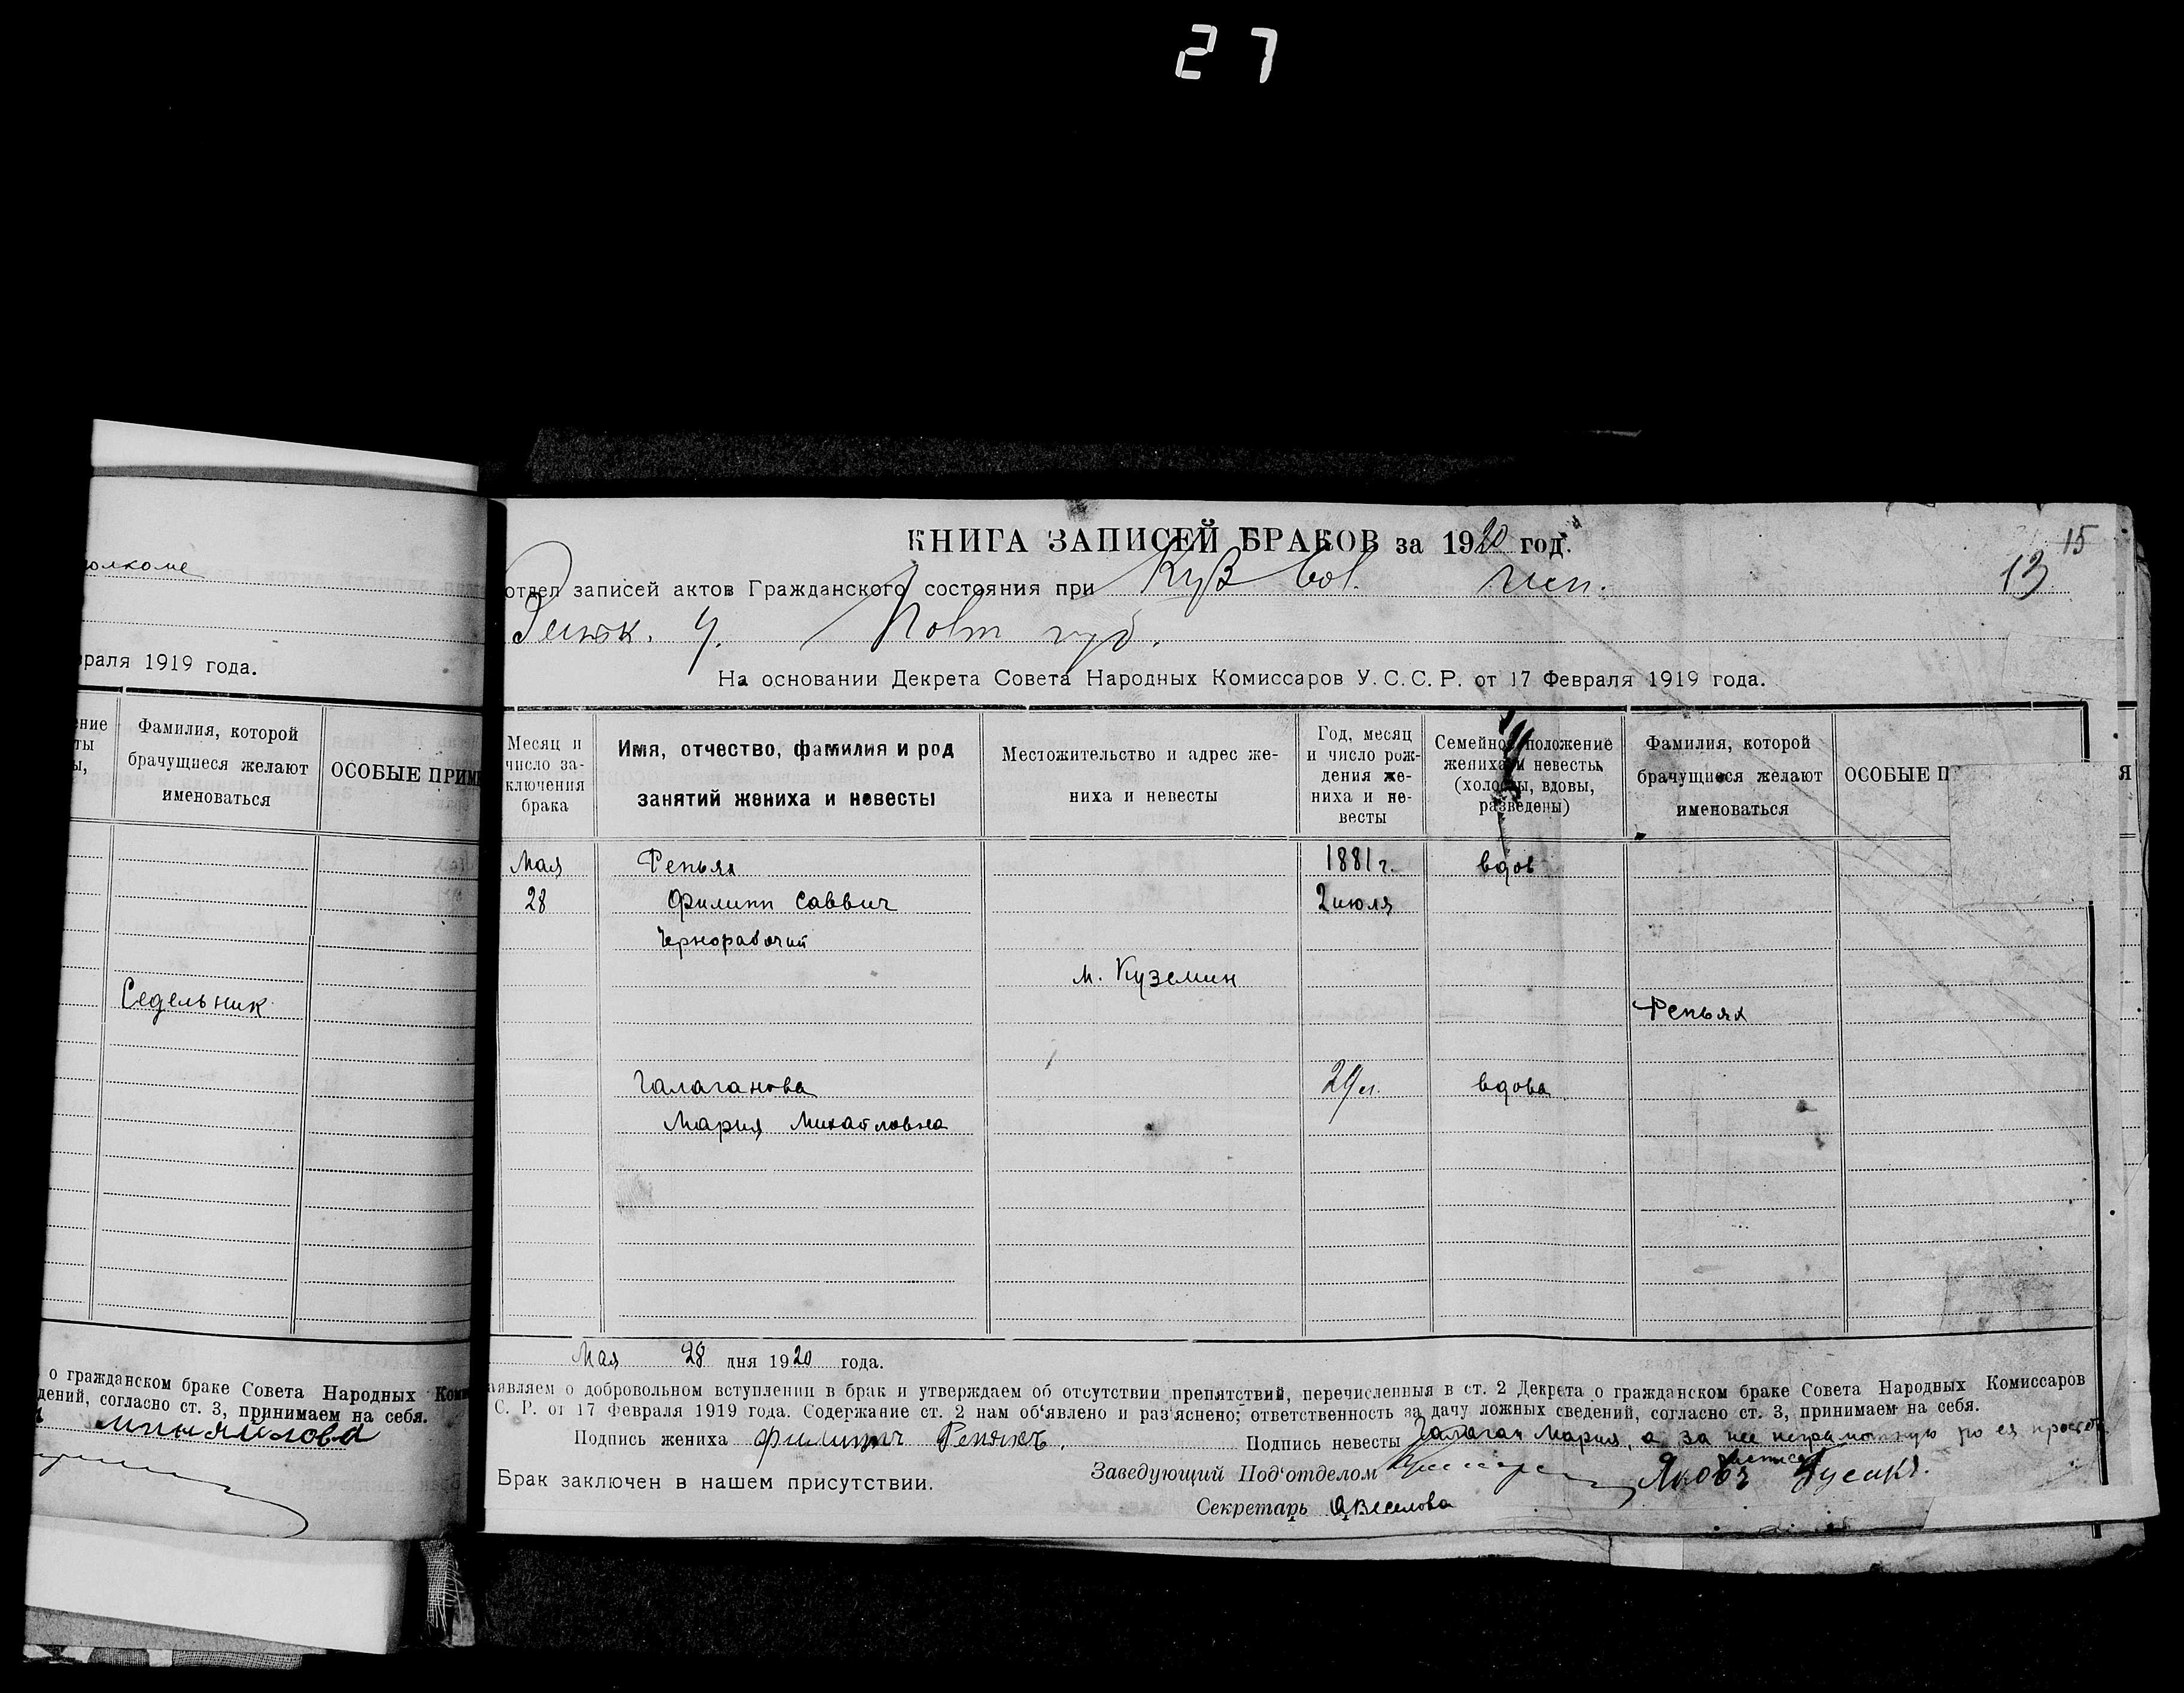 27
олкоме
враля 1919 года.
ение
ты
ы,
Фамилия, которой
брачущиеся желают
именоваться
ОСОБЫЕ ПРИМ
Седельник
о гражданском браке Совета Народных Коми
дений, согласно ст. 3, принимаем на себя.
КНИГА ЗАПИСЕЙ БРАКОВ за 1920 год.
15
отдел записей актов Гражданского состояния при Куз Вол. Исп.
13
Зеньк. у. Полт губ.
На основании Декрета Совета Народных Комиссаров У.С.С.Р. от 17 Февраля 1919 года.
Месяц и
число за-
ключения
брака
Имя, отчество, фамилия и род
занятий жениха и невесты
Местожительство и адрес же-
ниха и невесты
Год, месяц
и число рож-
дения же-
ниха и не-
весты
Семейное положение
жениха и невесты
(холосты, вдовы,
разведены)
Фамилия, которой
брачущиеся желают
именоваться
ОСОБЫЕ П
Я
Мая Репьях 1881 г. вдов
28 Филипп Саввич 2 июля
Чернорабочий
м. Куземин
Репьях
Галаганова 29 л. вдова
Мария Михайловна
Мая 28 дня 1920 года.
аявляем о добровольном вступлении в брак и утверждаем об отсутствии препятствий, перечисленныя в ст. 2 Декрета о гражданском браке Совета Народных Комиссаров
С. Р. от 17 Февраля 1919 года. Содержание ст. 2 нам об‘явлено и раз‘яснено; ответственность за дачу ложных сведений, согласно ст. 3, принимаем на себя.
Подпись жениха Филипп Репяхъ. Подпись невесты Галаган Мария, а за нее неграмотную по ея прозьбе
расписал
Брак заключен в нашем присутствии. Заведующий Под‘отделом Яковъ
Секретарь Веселова